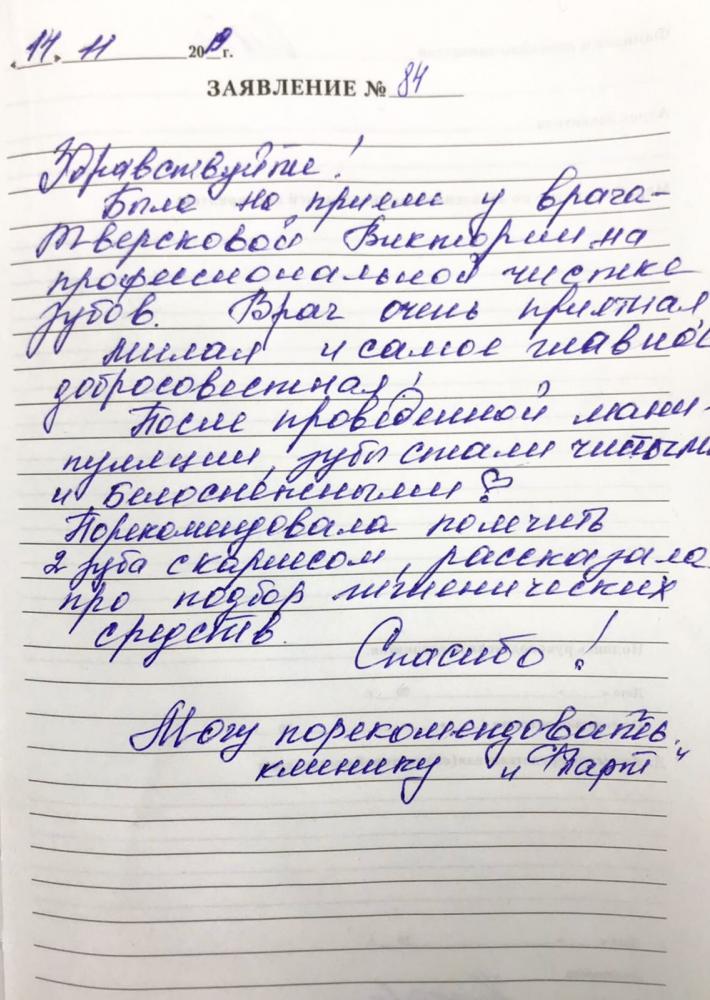 « 14 » 11 2019 г.
ЗАЯВЛЕНИЕ № 84
Здравствуйте!
Была на приеме у врача-
Тверсковой Виктории на
профессиональной чистке
зубов. Врач очень приятная,
милая и самое главное
добросовестная!
После проведенной мани-
пуляции, зубы стали чистыми
и белоснежными
Порекомендовала полечить
2 зуба с кариесом, рассказала
про подбор гигиенических
средств. Спасибо!
Могу порекомендовать
клинику "Старт"